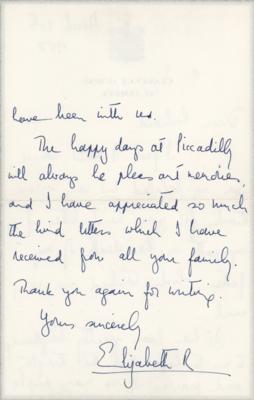 have been with us.
The happy days at Piccadilly
will always be pleasant memories,
and I have appreciated so much
the kind letters which I have
received from all your family.
Thank you again for writing.
Yours sincerely
Elizabeth R